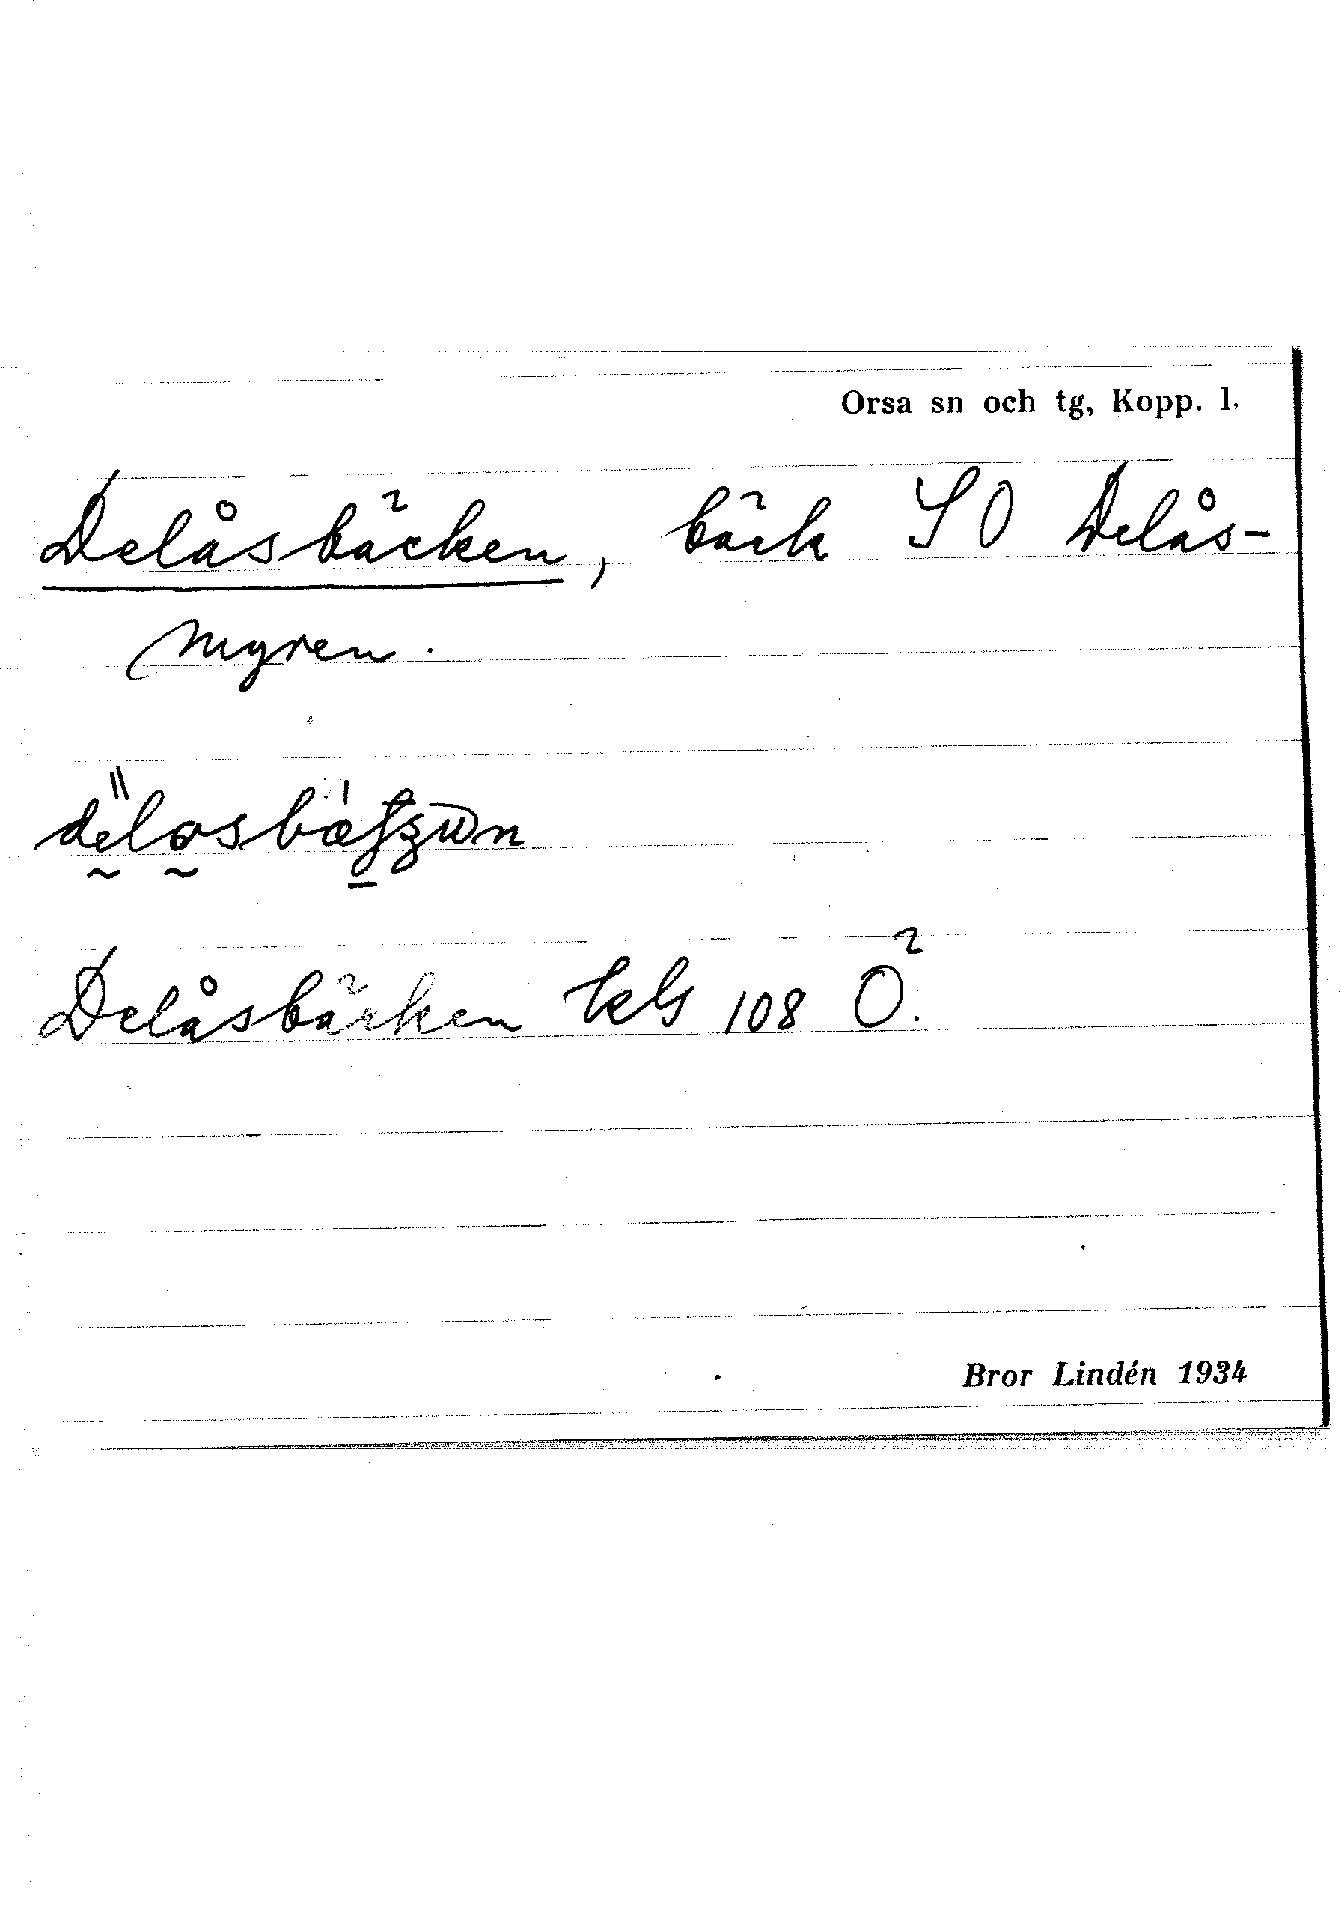 Orsa sn och tg, Kopp. l.
Delåsbäcken, bäck SO Delås-
myren.
Delåsbäcken kbl 108 Ö.
Bror Lindén 1934